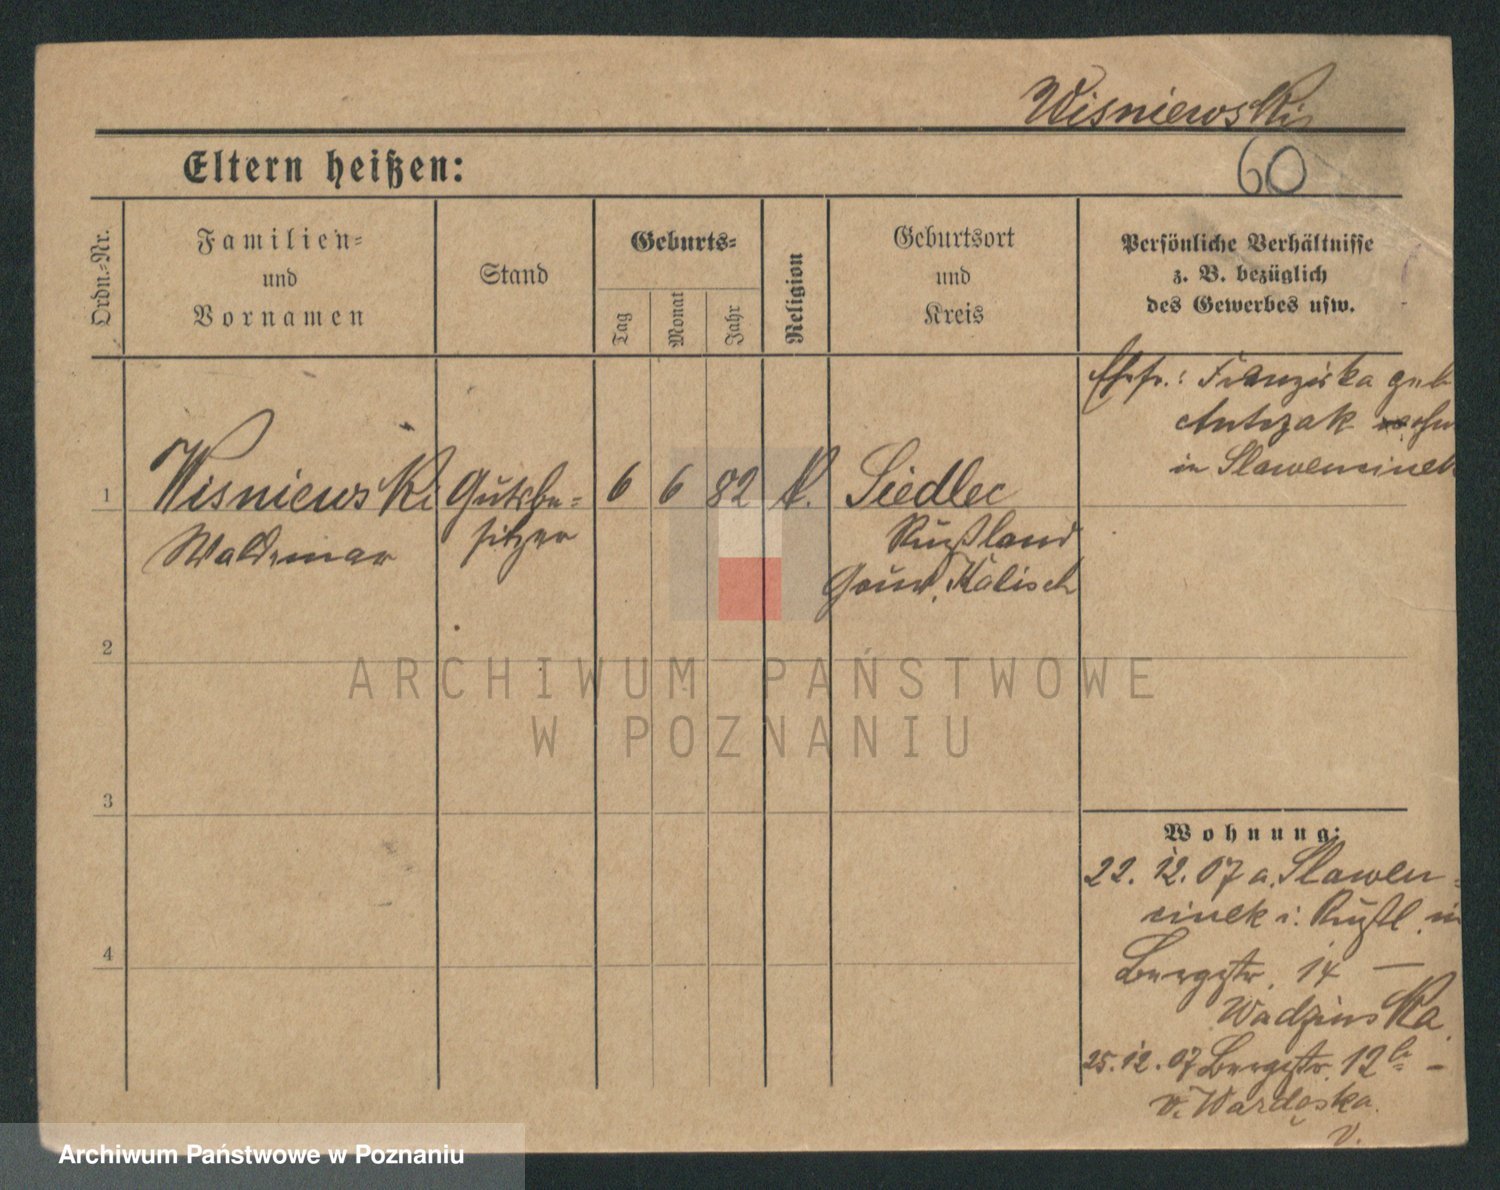 Wisniewski
60
Eltern heißen:
Ordn.-Nr.
Familien-
und
Vornamen
Stand
Geburts-
Tag
Monat
Jahr
Religion
Geburtsort
und
Kreis
Persönliche Verhältnisse
z. B. bezüglich
des Gewerbes usw.
Ehefr.: Franziska geb
Antczak
in Slawencinek
1 Wisniewski Gutsbe= 6 6 82 K. Siedlec
Waldemar sitzer Rußland
Gouv. Kalisch
2
3
4
Wohnung:
22. 12. 07 a. Slawen=
cinek i. Rußl. in
Bergstr. 14 —
Wadzinska
25. 12. 07 Bergstr. 12b –
v. Wardęska.
v.
ARCHIWUM PAŃSTWOWE
W POZNANIU
Archiwum Państwowe w Poznaniu